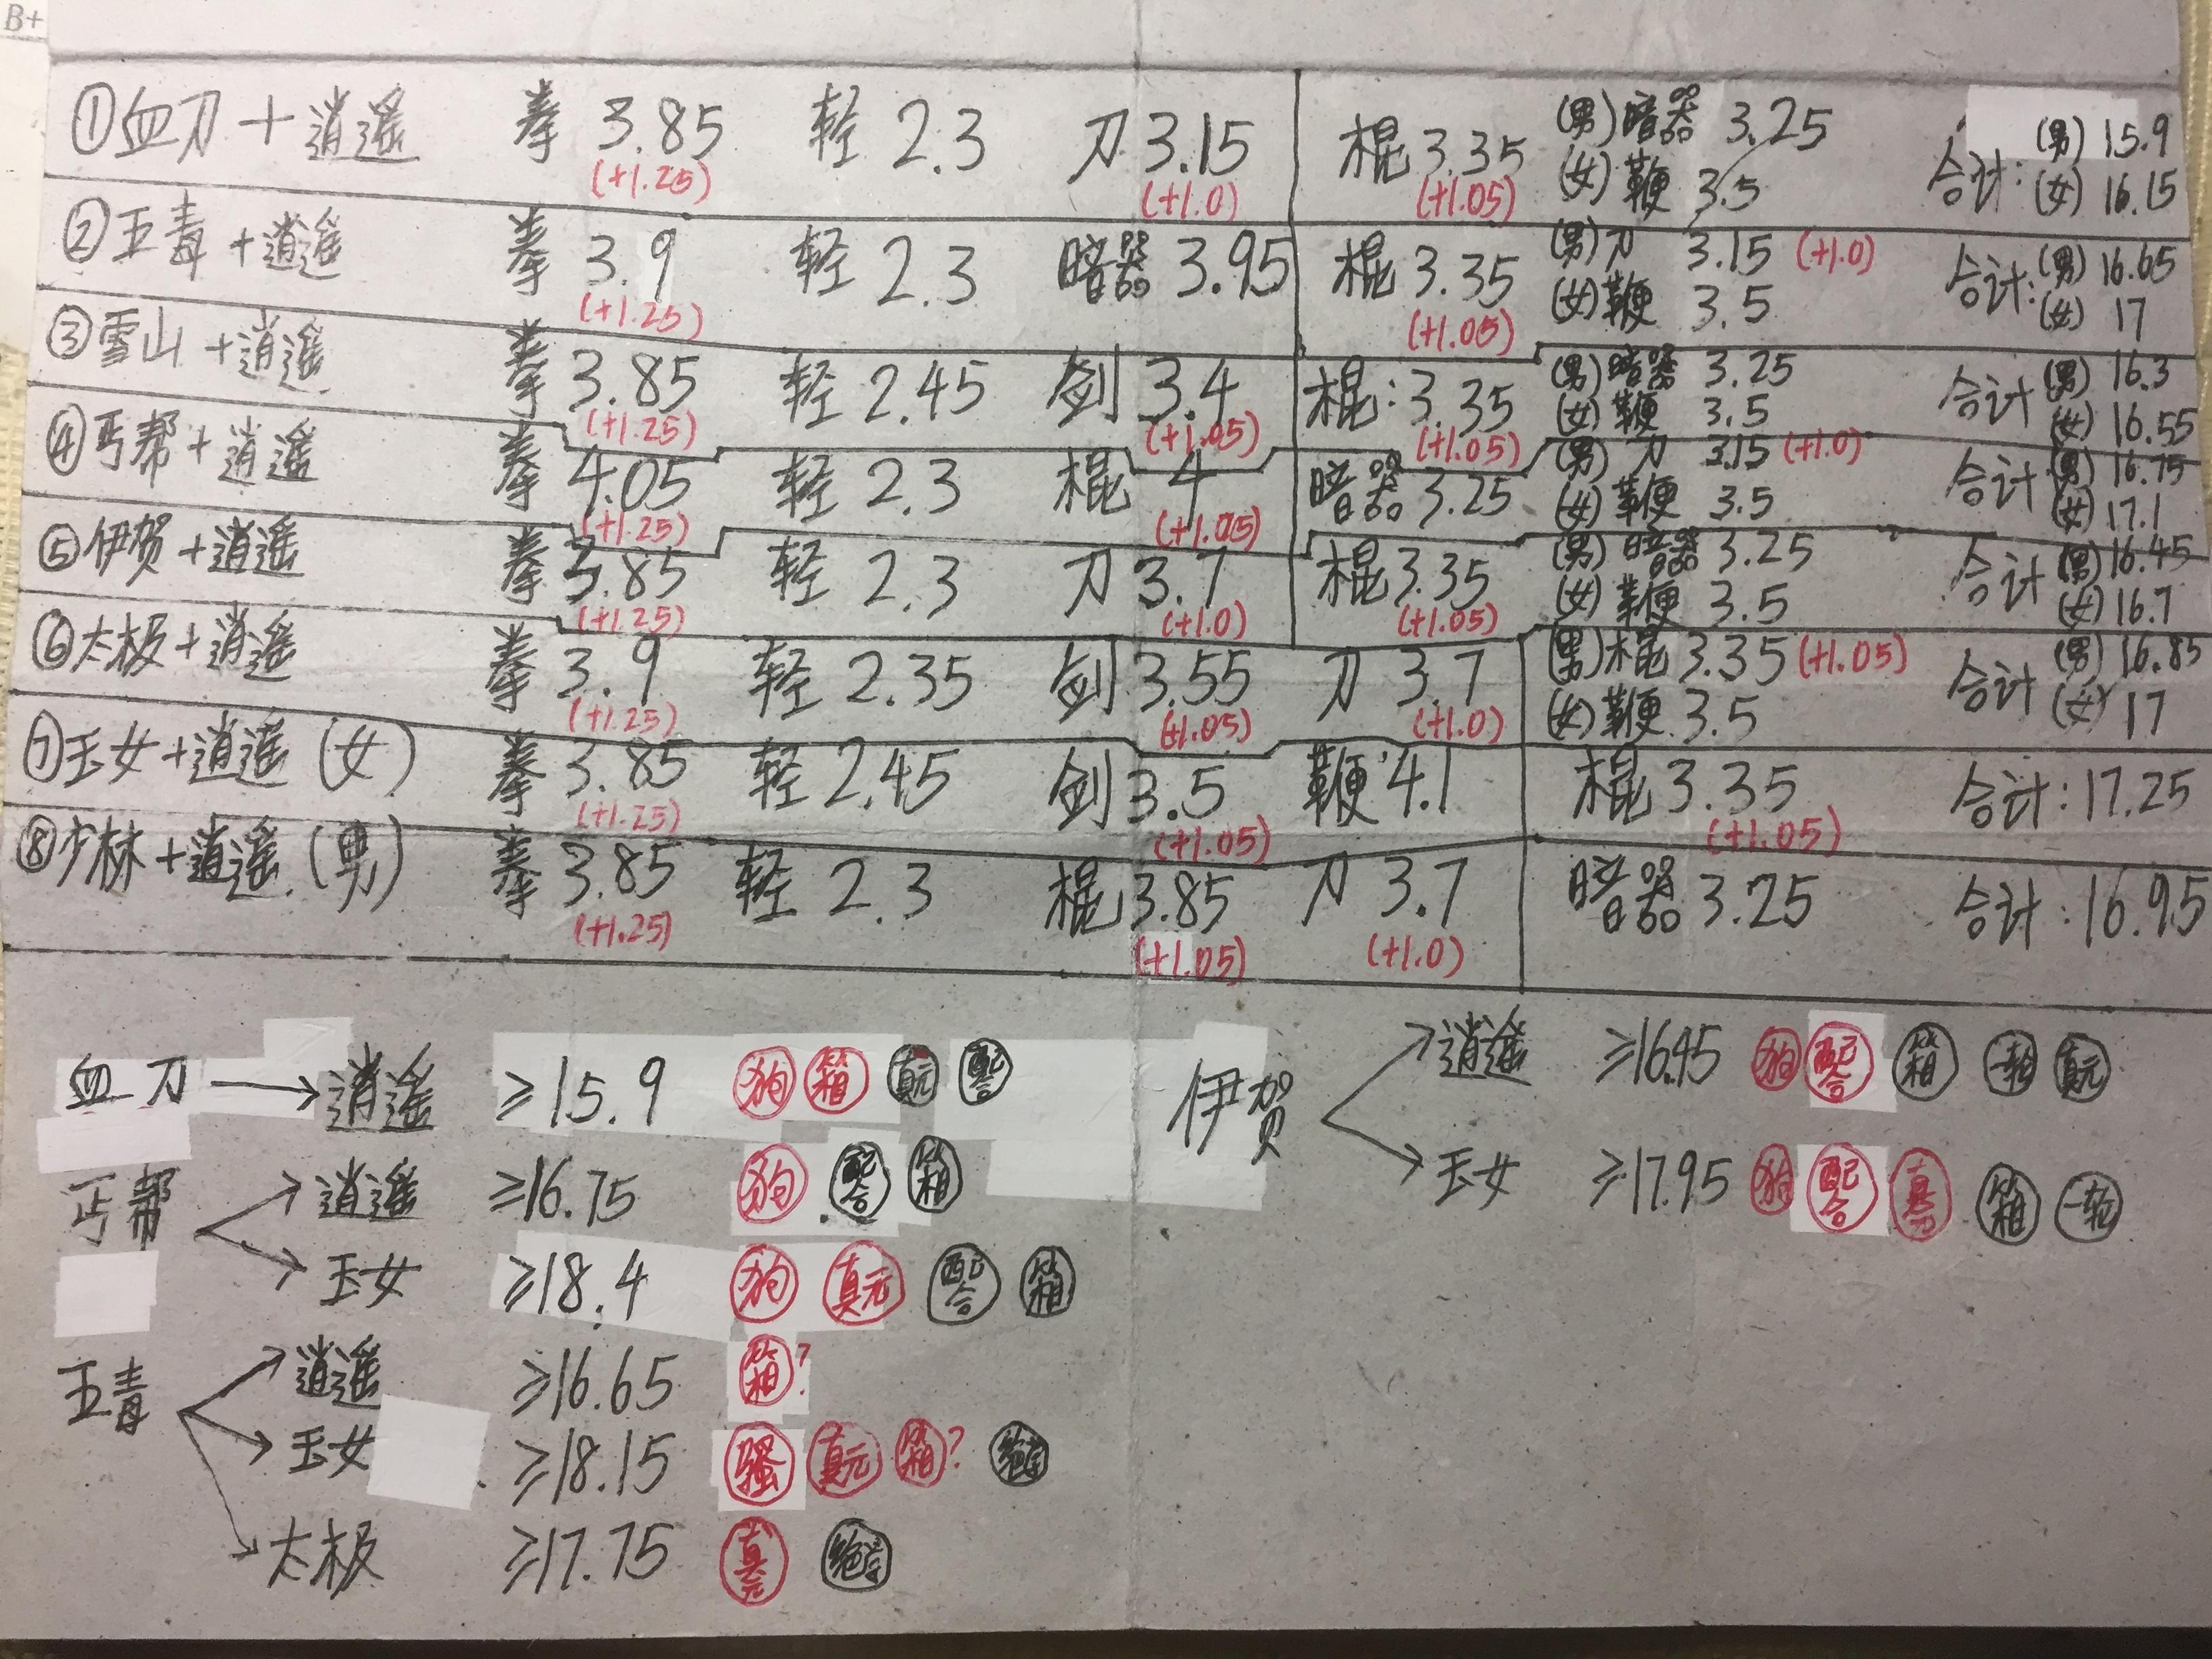 B+
①血刀+逍遥 拳 3.85 (+1.25) 轻 2.3 刀 3.15 (+1.0) 棍 3.35 (+1.05) (男)暗器 3.25 (女)鞭 3.5 合计: (男) 15.9 (女) 16.15
②五毒+逍遥 拳 3.9 (+1.25) 轻 2.3 暗器 3.95 棍 3.35 (+1.05) (男)刀 3.15 (+1.0) (女)鞭 3.5 合计: (男) 16.65 (女) 17
③雪山+逍遥 拳 3.85 (+1.25) 轻 2.45 剑 3.4 (+1.05) 棍: 3.35 (+1.05) (男)暗器 3.25 (女)鞭 3.5 合计 (男) 16.3 (女) 16.55
④丐帮+逍遥 拳 4.05 (+1.25) 轻 2.3 棍 4 (+1.05) 暗器 3.25 (男) 刀 3.15 (+1.0) (女)鞭 3.5 合计 (男) 16.75 (女) 17.1
⑤伊贺+逍遥 拳 3.85 (+1.25) 轻 2.3 刀 3.7 (+1.0) 棍 3.35 (+1.05) (男)暗器 3.25 (女)鞭 3.5 合计 (男) 16.45 (女) 16.7
⑥太极+逍遥 拳 3.9 (+1.25) 轻 2.35 剑 3.55 (+1.05) 刀 3.7 (+1.0) (男)棍 3.35 (+1.05) (女)鞭 3.5 合计 (男) 16.85 (女) 17
⑦玉女+逍遥(女) 拳 3.85 (+1.25) 轻 2.45 剑 3.5 (+1.05) 鞭 4.1 棍 3.35 (+1.05) 合计: 17.25
⑧少林+逍遥(男) 拳 3.85 (+1.25) 轻 2.3 棍 3.85 (+1.05) 刀 3.7 (+1.0) 暗器 3.25 合计: 16.95
血刀→逍遥 ≥15.9 狗 箱 真元 配合
丐帮→逍遥 ≥16.75 狗 配合 箱
→玉女 ≥18.4 狗 真元 配合 箱
五毒→逍遥 ≥16.65 箱?
→玉女 ≥18.15 骚 真元 箱?
→太极 ≥17.75 真元
伊贺→逍遥 ≥16.45 狗 配合 箱 一轮 真元
→玉女 ≥17.95 狗 配合 真元 箱 一轮